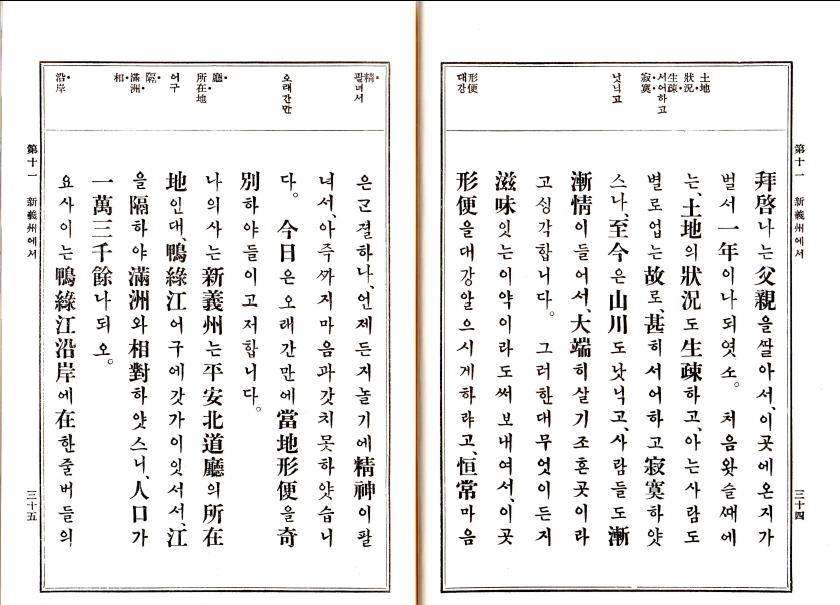 第十一 新義州에서 三十四
土地
狀況
生疎
서어하고
寂寞
낫닉고
形便
대강
拜啓나는父親을ᄯᅡᆯ아서、이곳에온지가
벌서一年이나되엿소。 처음왓슬ᄯᅢ에
는、土地의狀況도生疎하고、아는사람도
별로업는故로、甚히서어하고寂寞하얏
스나、至今은山川도낫닉고、사람들도漸
漸情이들어서、大端히살기조흔곳이라
고싱각합니다。 그러한대무엇이든지
滋味잇는이약이라도써보내여서、이곳
形便을대강알으시게하랴고、恒常마음
精
팔녀서
오래간만
廳
所在地
어구
隔
滿洲
和
沿岸
은ᄀᆞᆫ절하나、언제든지놀기에精神이팔
녀서、아즉ᄭᅡ지마음과갓치못하얏습니
다。 今日은오래간만에當地形便을奇
別하야들이고저합니다。
나의사는新義州는平安北道廳의所在
地인대、鴨綠江어구에갓가이잇서서、江
을隔하야滿洲와相對하얏스니、人口가
一萬三千餘나되오。
요사이는鴨綠江沿岸에在한줄버들의
第十一 新義州에서 三十五